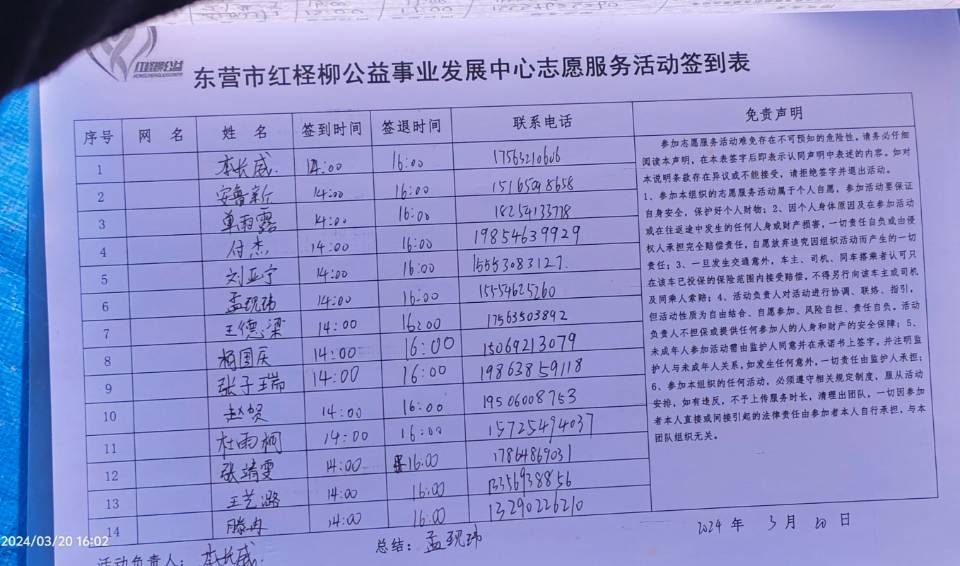 红柽柳公益
东营市红柽柳公益事业发展中心志愿服务活动签到表
序号 网 名 姓 名 签到时间 签退时间 联系电话 免责声明
1 李长威 14:00 16:00 17563210606
2 安鲁新 14:00 16:00 15165918658
3 单雨露 14:00 16:00 18254133778
4 付杰 14:00 16:00 19854639929
5 刘亚宁 14:00 16:00 15553083127.
6 孟现玮 14:00 16:00 15554625260
7 王德梁 14:00 16:00 17563503892
8 杨国庆 14:00 16:00 15069213079
9 张子瑞 14:00 16:00 19863859118
10 赵贺 14:00 16:00 19506008753
11 杜雨桐 14:00 16:00 15725494037
12 张靖雯 14:00 16:00 17864869031
13 王艺潞 14:00 16:00 13356938856
14 滕冉 14:00 16:00 13290226210
参加志愿服务活动难免存在不可预知的危险性，请务必仔细
阅读本声明，在本表签字后即表示认同声明中表述的内容。如对
本说明条款存在异议或不能接受，请拒绝签字并退出活动。
1、参加本组织的志愿服务活动属于个人自愿，参加活动要保证
自身安全，保护好个人财物；2、因个人身体原因及在参加活动
或在往返途中发生的任何人身或财产损害，一切责任自负或由侵
权人承担完全赔偿责任，自愿放弃追究因组织活动而产生的一切
责任；3、一旦发生交通意外，车主、司机、同车搭乘者认可只
在该车已投保的保险范围内接受赔偿，不得另行向该车主或司机
及同乘人索赔；4、活动负责人对活动进行协调、联络、指引，
但活动性质为自由结合、自愿参加、风险自担、责任自负。活动
负责人不担保或提供任何参加人的人身和财产的安全保障；5、
未成年人参加活动需由监护人同意并在承诺书上签字，并注明监
护人与未成年人关系，如发生任何意外，一切责任由监护人承担；
6、参加本组织的任何活动，必须遵守相关规定制度，服从活动
安排，如有违反，不予上传服务时长，清理出团队，一切因参加
者本人直接或间接引起的法律责任由参加者本人自行承担，与本
团队组织无关。
2024 年 3 月 20 日
活动负责人：李长威. 总结：孟现玮
2024/03/20 16:02